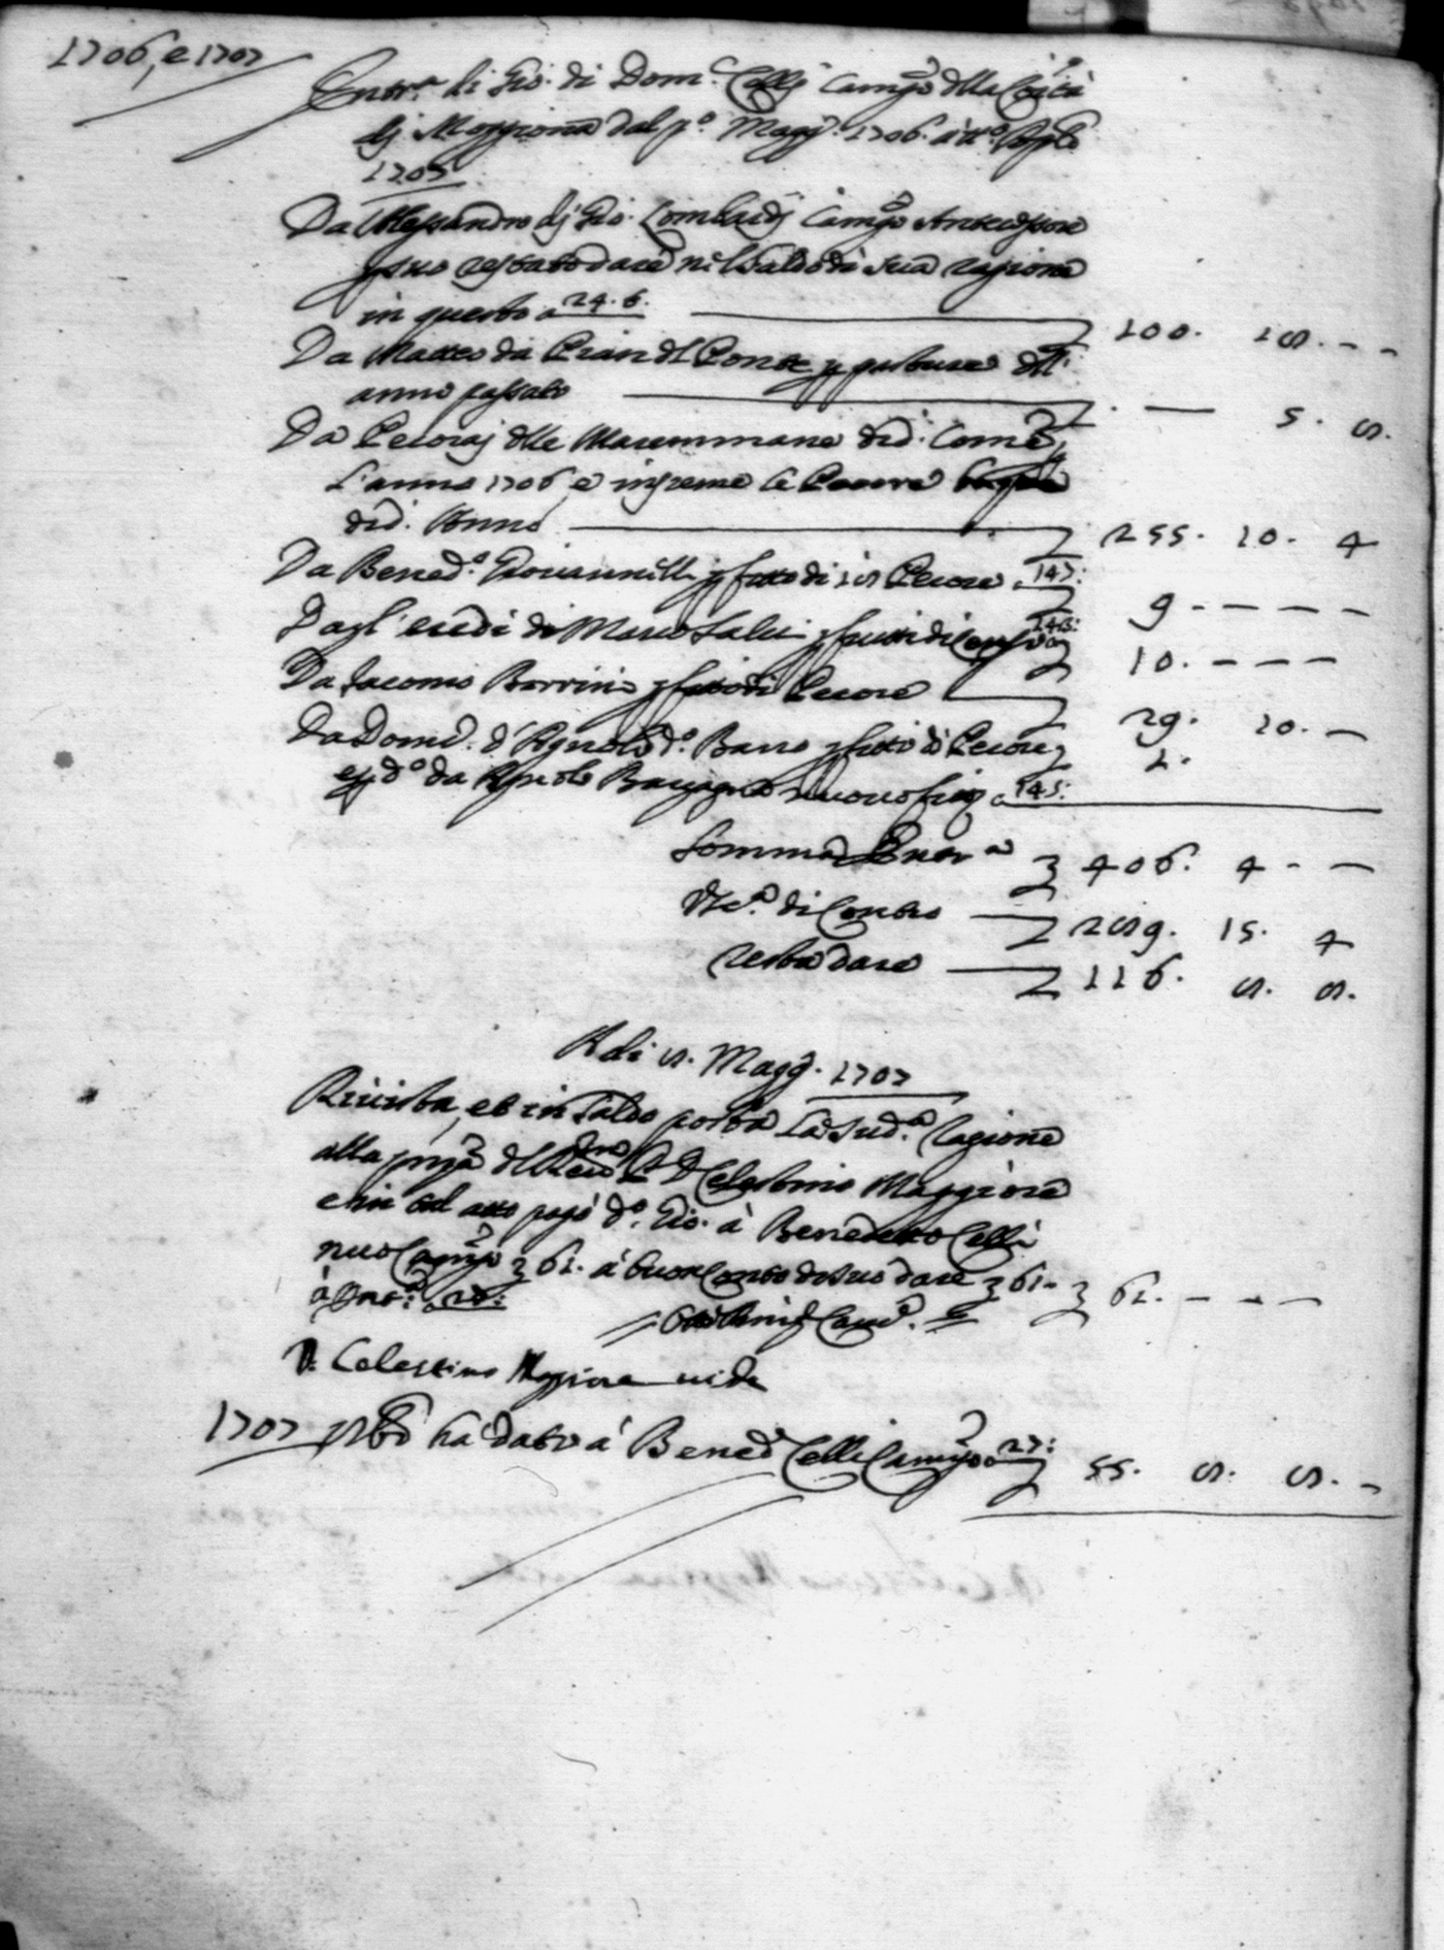 1706, e 1707
Entr.ª di Gio. di Dom.º Celli Camg.º dlla Comtà
dj Moggiona dal p.º Magg.º 1706. a tt.º Aple
1707
Da Alessandro dj Gio. Lombardj Camg.º Antecessore
p suo restato dare nel saldo di sua ragione
in questo a 24. 6. 100. 18. - -
Da Matteo da Pian dl Ponte p pasture dll'
anno passato . — 5. 8.
Da Pecoraj dlle Maremmane di d.ª Com.tà
L'anno 1706 e insieme le Pecore
di d. Anno 255. 10. 4
Da Bened.º Giovannelli p frutto di 18 Pecore 147: 9 - - - -
Dagl' eredi di Marco Salvi p frutti di 10. - - -
Da Jacomo Borrini p frutto di Pecore 29. 10. -
Da Dom.º d'Agnolo d.º Barro p frutto di Pecore 1.
e p d.º da Agnolo 145:
Somma Entr.ª 406. 4 - -
Usc.ª di Contro 289. 15. 4
resta dare 116. 8. 8.
A di 8. Magg.º 1707
Rivista, et in saldo posta la sud.ª ragione
alla prza dl Rev.mo P. D. Celestino Maggiore
e in tal atto pagò d.º Gio. à Benedetto Celli
nuo Camg.º 61. à buon Conto di suo dare 61. - 61. - - -
à Entr.ª 28: Canc.e
D. Celestino Maggiore vide
1707 ha dato a Bened.º Celli Camg.º a 27: 55. 8. 8. -